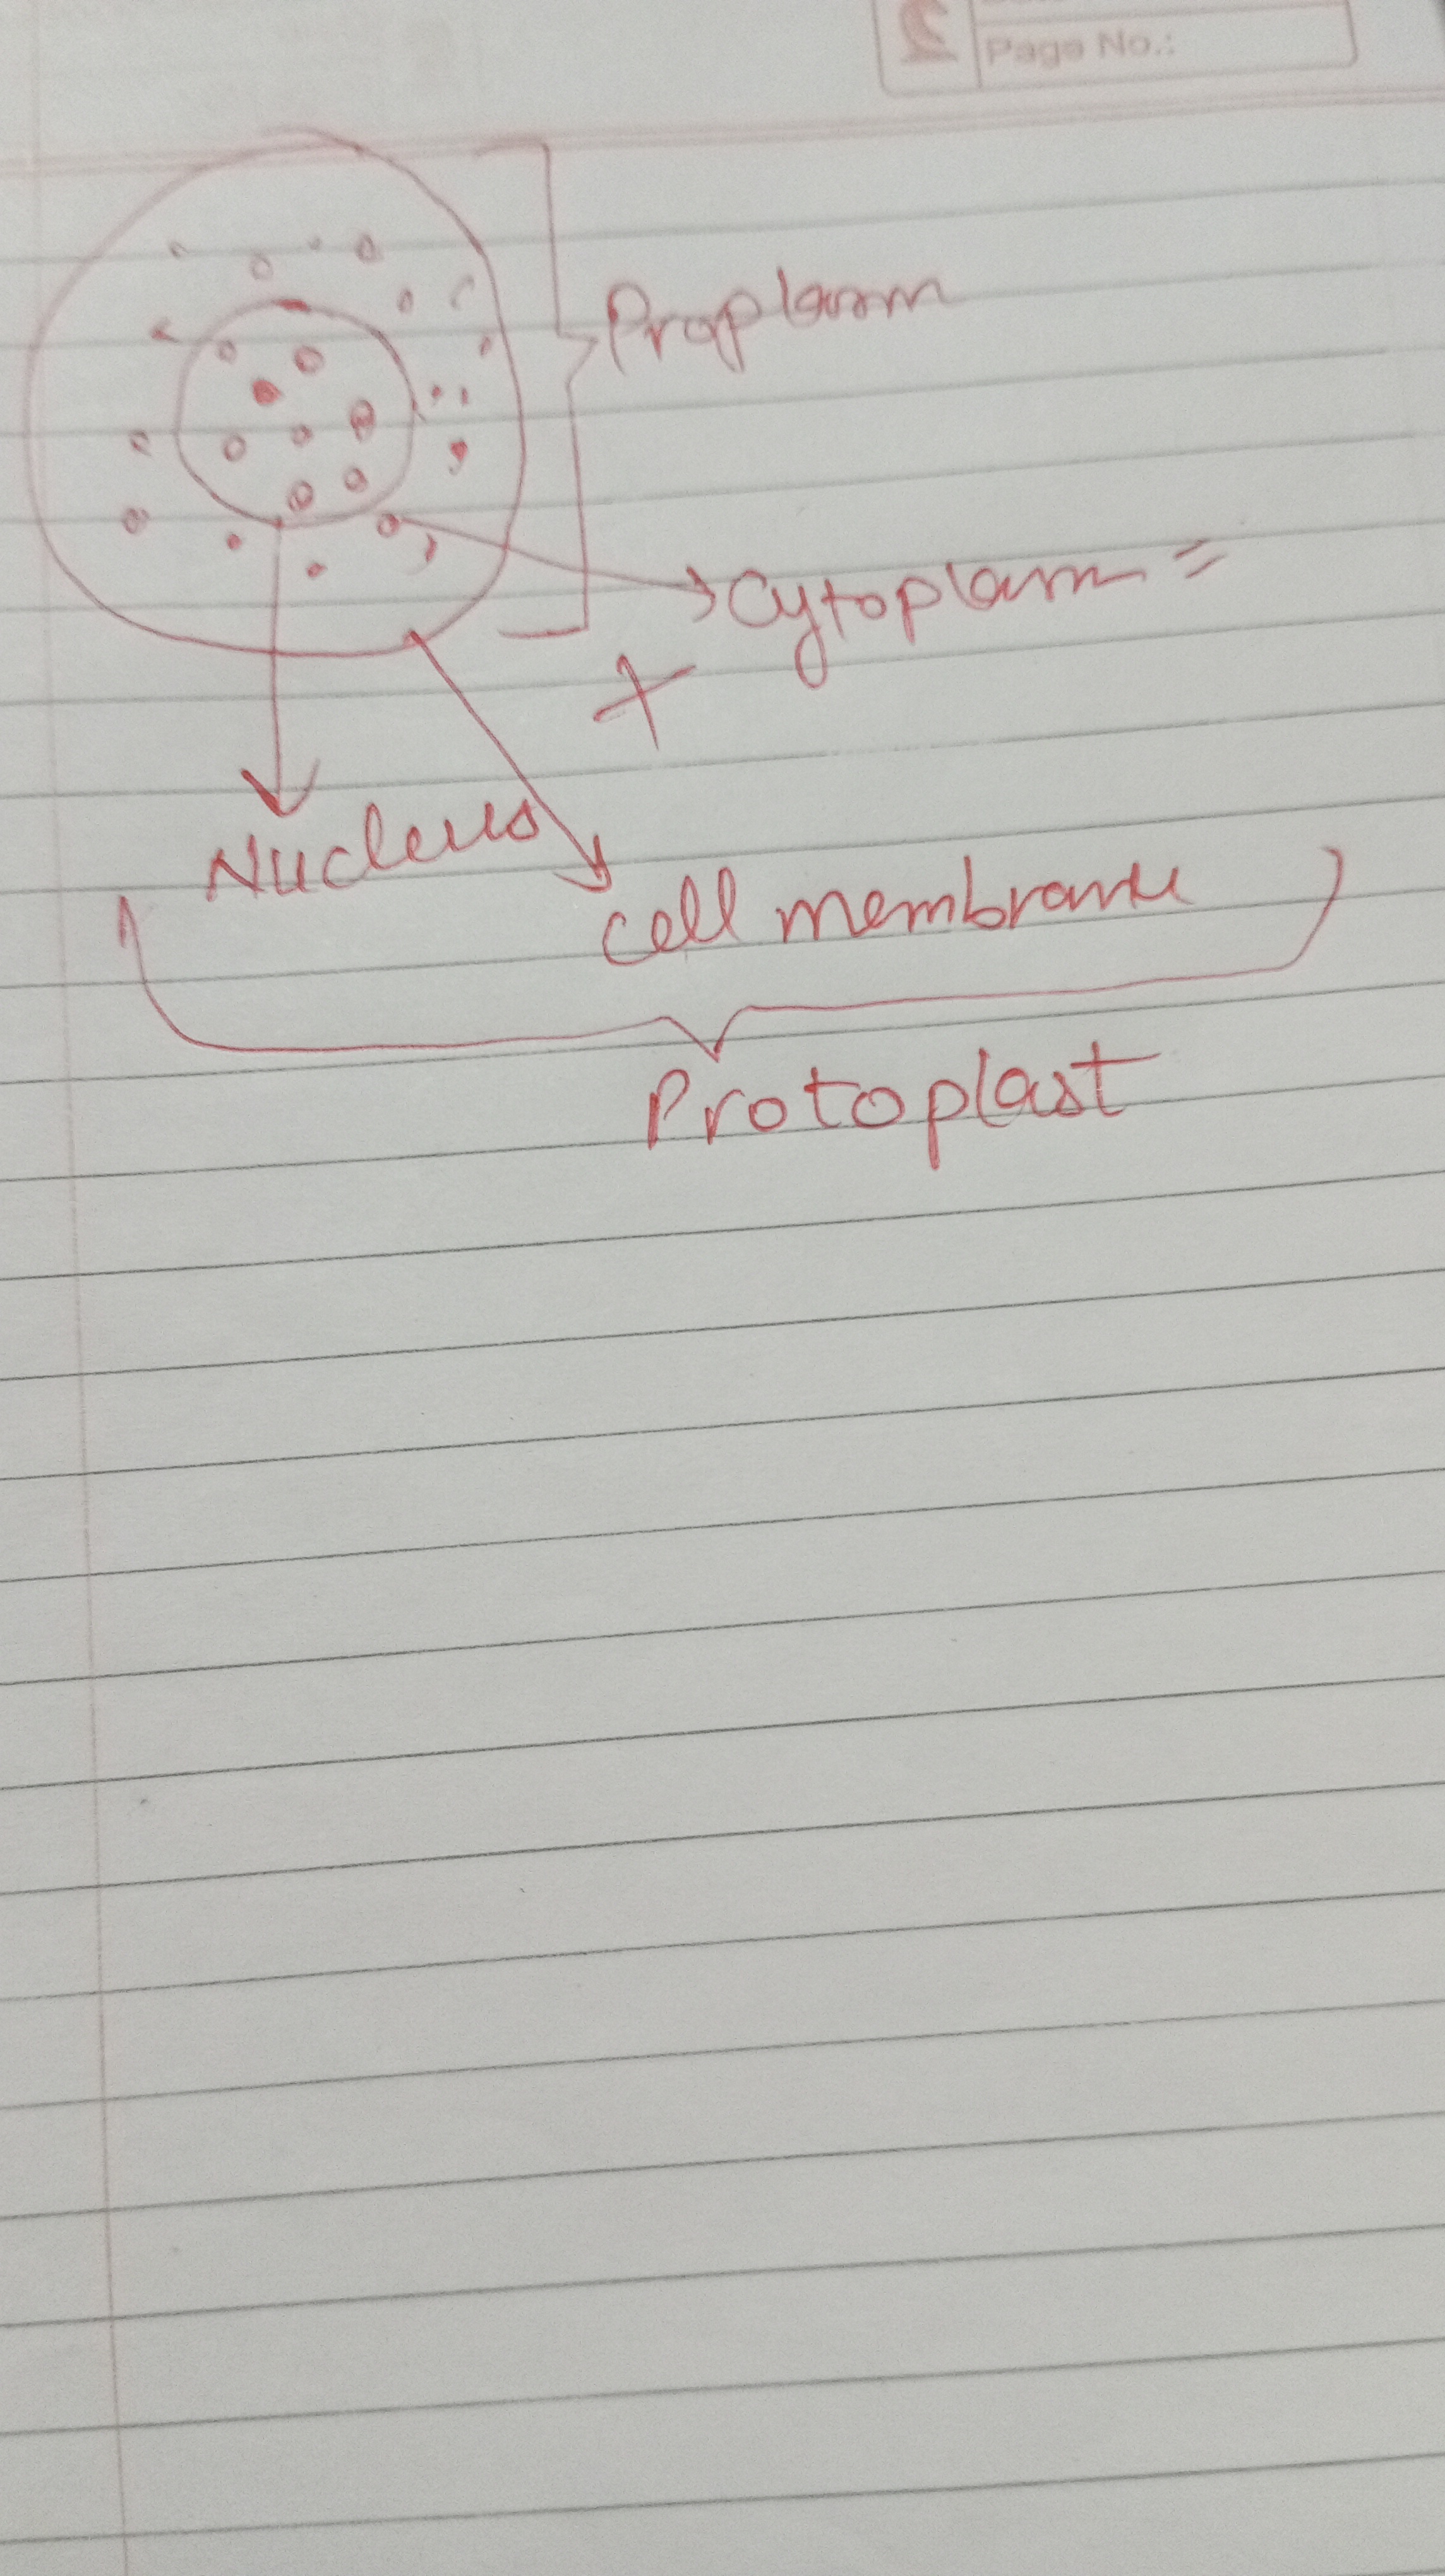 Page No.:
Proplasm
Cytoplasm =
+
Nucleus
cell membrane
Protoplast